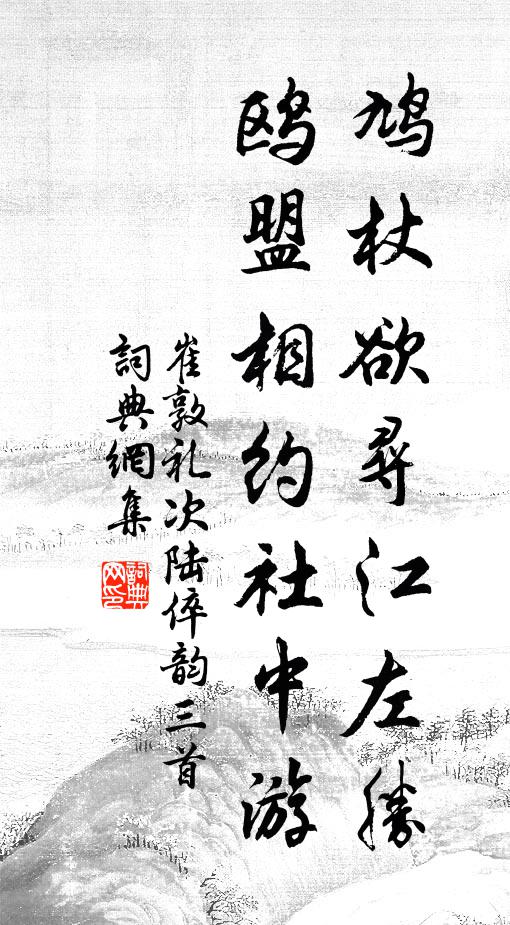 鸠杖欲寻江左胜
鸥盟相约社中游
崔敦礼次陆倅韵三首
詞典網集
詞典网印